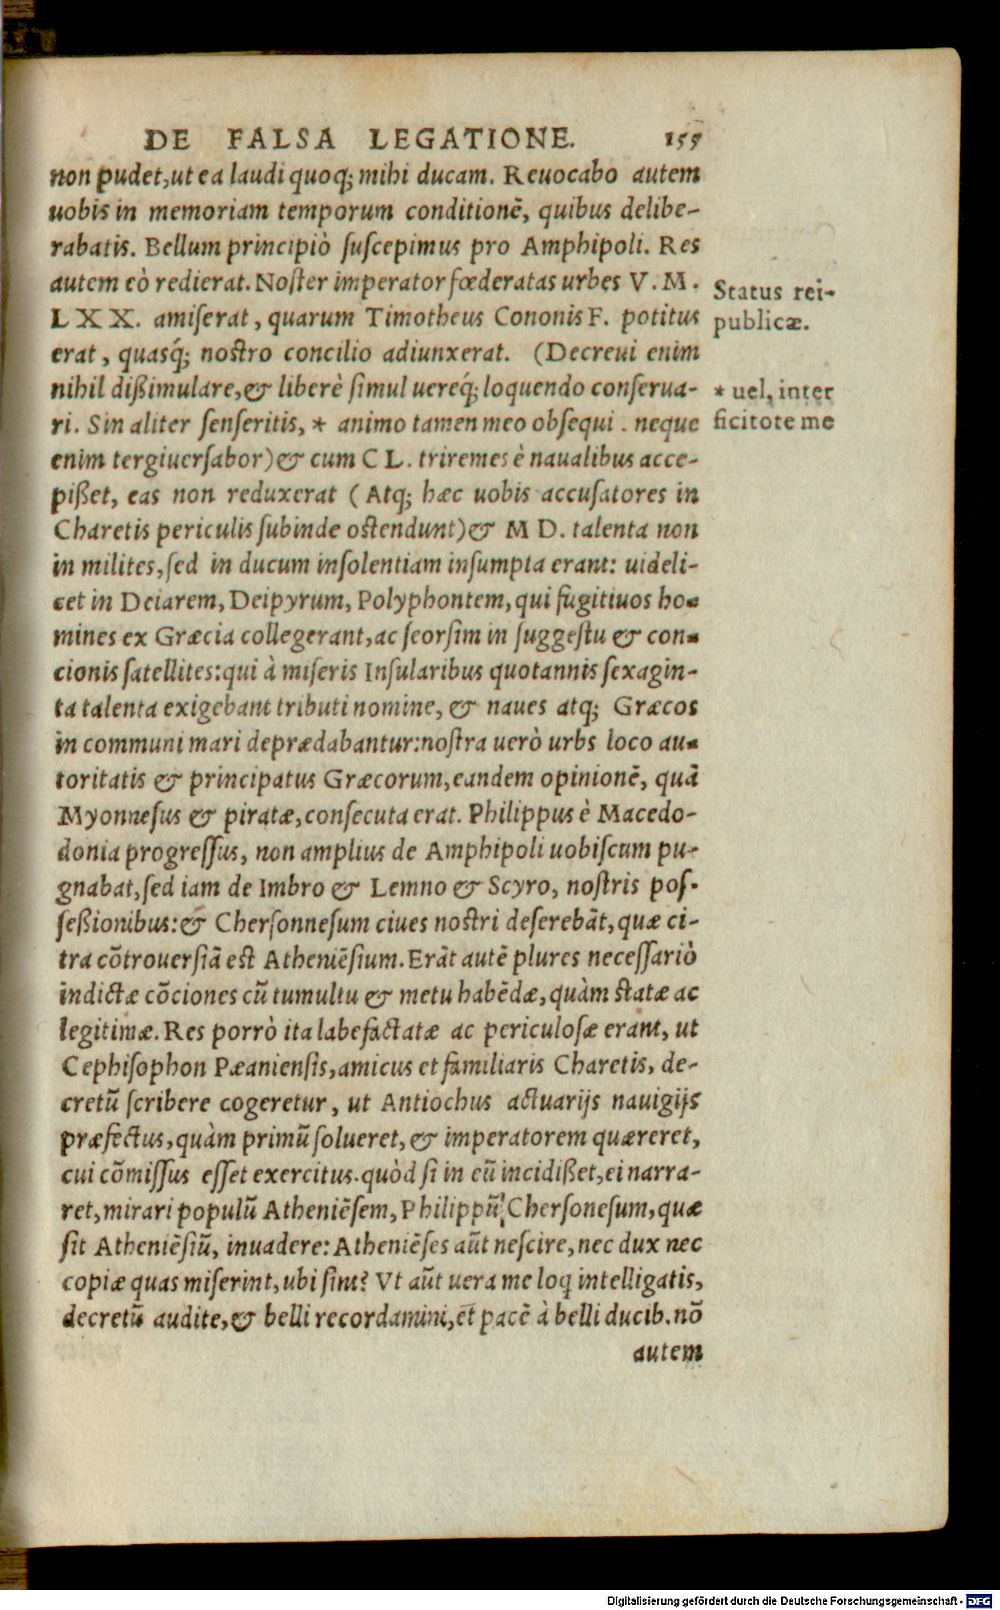 DE FALSA LEGATIONE. 155
non pudet, ut ea laudi quoq; mihi ducam. Reuocabo autem
uobis in memoriam temporum conditionē, quibus delibe-
rabatis. Bellum principiò suscepimus pro Amphipoli. Res
autem eò redierat. Noster imperator fœderatas urbes V. M.
LXX. amiserat, quarum Timotheus Cononis F. potitus
erat, quasq́; nostro concilio adiunxerat. (Decreui enim
nihil dißimulare, & liberè simul uereq́; loquendo conserua-
ri. Sin aliter senseritis, * animo tamen meo obsequi. neque
enim tergiuersabor) & cum CL. triremes è naualibus acce-
pißet, eas non reduxerat (Atq; hæc uobis accusatores in
Charetis periculis subinde ostendunt) & M D. talenta non
in milites, sed in ducum insolentiam insumpta erant: uideli-
cet in Deiarem, Deipyrum, Polyphontem, qui fugitiuos ho-
mines ex Græcia collegerant, ac seorsim in suggestu & con-
cionis satellites: qui à miseris Insularibus quotannis sexagin-
ta talenta exigebant tributi nomine, & naues atq; Græcos
in communi mari deprædabantur: nostra uerò urbs loco au-
toritatis & principatus Græcorum, eandem opinionē, quā
Myonnesus & piratæ, consecuta erat. Philippus è Macedo-
donia progressus, non amplius de Amphipoli uobiscum pu-
gnabat, sed iam de Imbro & Lemno & Scyro, nostris pos-
seßionibus: & Chersonnesum ciues nostri deserebāt, quæ ci-
tra cōtrouersiā est Atheniēsium. Erāt autē plures necessariò
indictæ cōciones cū tumultu & metu habēdæ, quàm statæ ac
legitimæ. Res porrò ita labefactatæ ac periculosæ erant, ut
Cephisophon Pæaniensis, amicus et familiaris Charetis, de-
cretū scribere cogeretur, ut Antiochus actuarijs nauigijs
præfectus, quàm primū solueret, & imperatorem quæreret,
cui cōmissus esset exercitus. quòd si in eū incidißet, ei narra-
ret, mirari populū Atheniēsem, Philippū Chersonesum, quæ
sit Atheniēsiū, inuadere: Atheniēses aūt nescire, nec dux nec
copiæ quas miserint, ubi sint? Vt aūt uera me loq intelligatis,
decretū audite, & belli recordamini, et pacē à belli ducib. nō
autem
Status rei-
publicæ.
* uel, inter
ficitote me
Digitalisierung gefördert durch die Deutsche Forschungsgemeinschaft - DFG